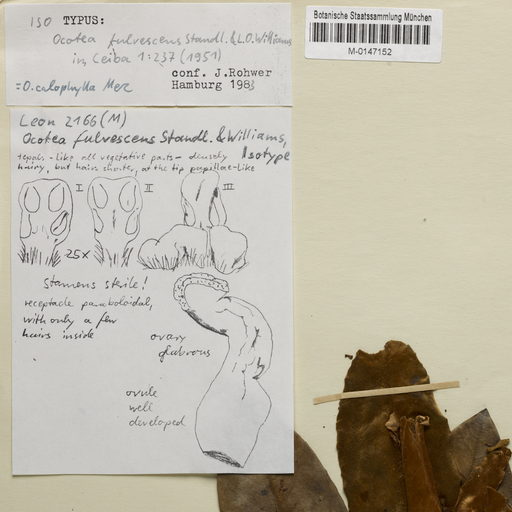 ISO TYPUS:
Ocotea fulvescens Standl. & L.O. Williams
in Ceiba 1:237 (1951)
conf. J.Rohwer
=O. calophylla Mez
Hamburg 1983
Botanische Staatssammlung München
M-0147152
Leon 2166 (M)
Ocotea fulvescens Standl. & Williams,
Isotype
tepals - like all vegetative parts - densely
hairy, but hairs shorter, at the tip papillae-like
I II III
25x
Stamens sterile!
receptacle paraboloidal,
with only a few
hairs inside
ovary
glabrous
ovule
well
developed